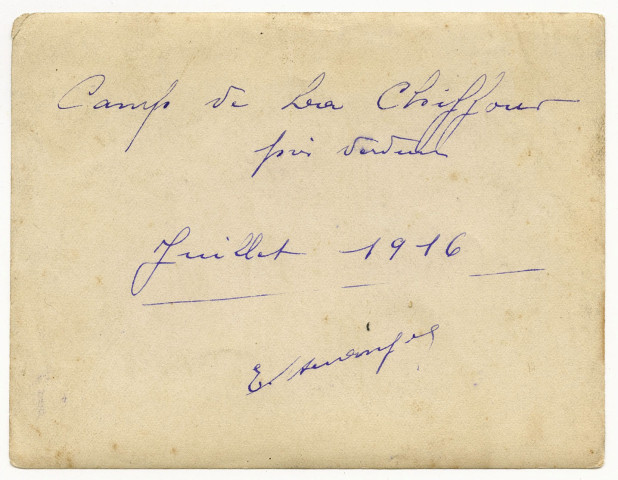 Camp de La Chiffour
près Verdun
Juillet 1916